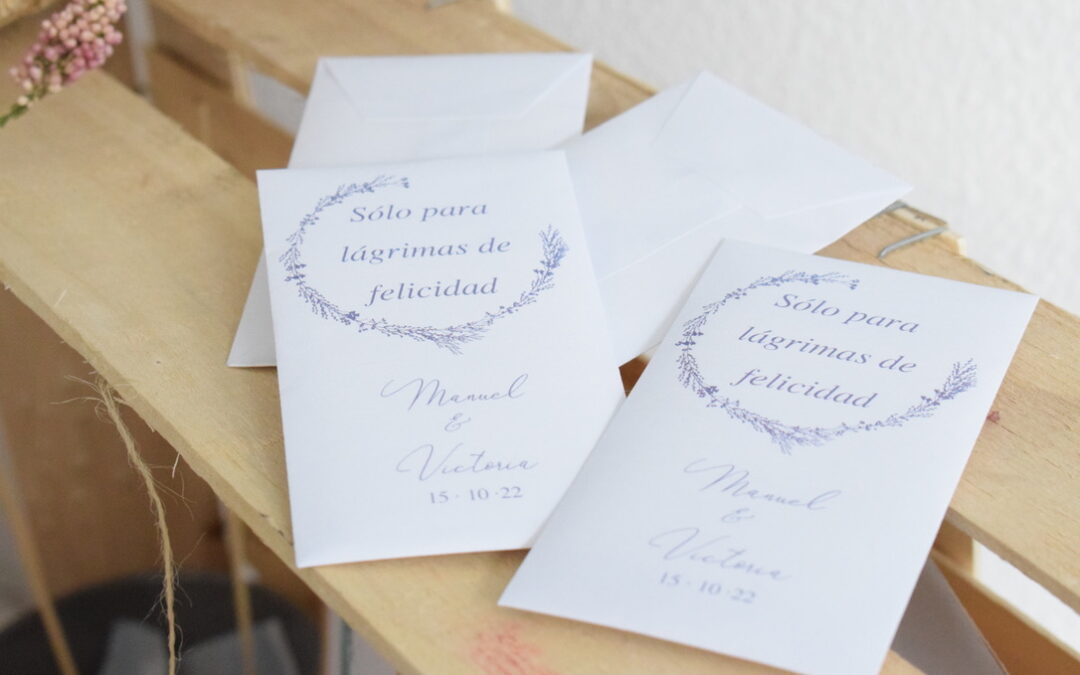 Sólo para
lágrimas de
felicidad
Manuel
&
Victoria
15 · 10 · 22
Sólo para
lágrimas de
felicidad
Manuel
&
Victoria
15 · 10 · 22